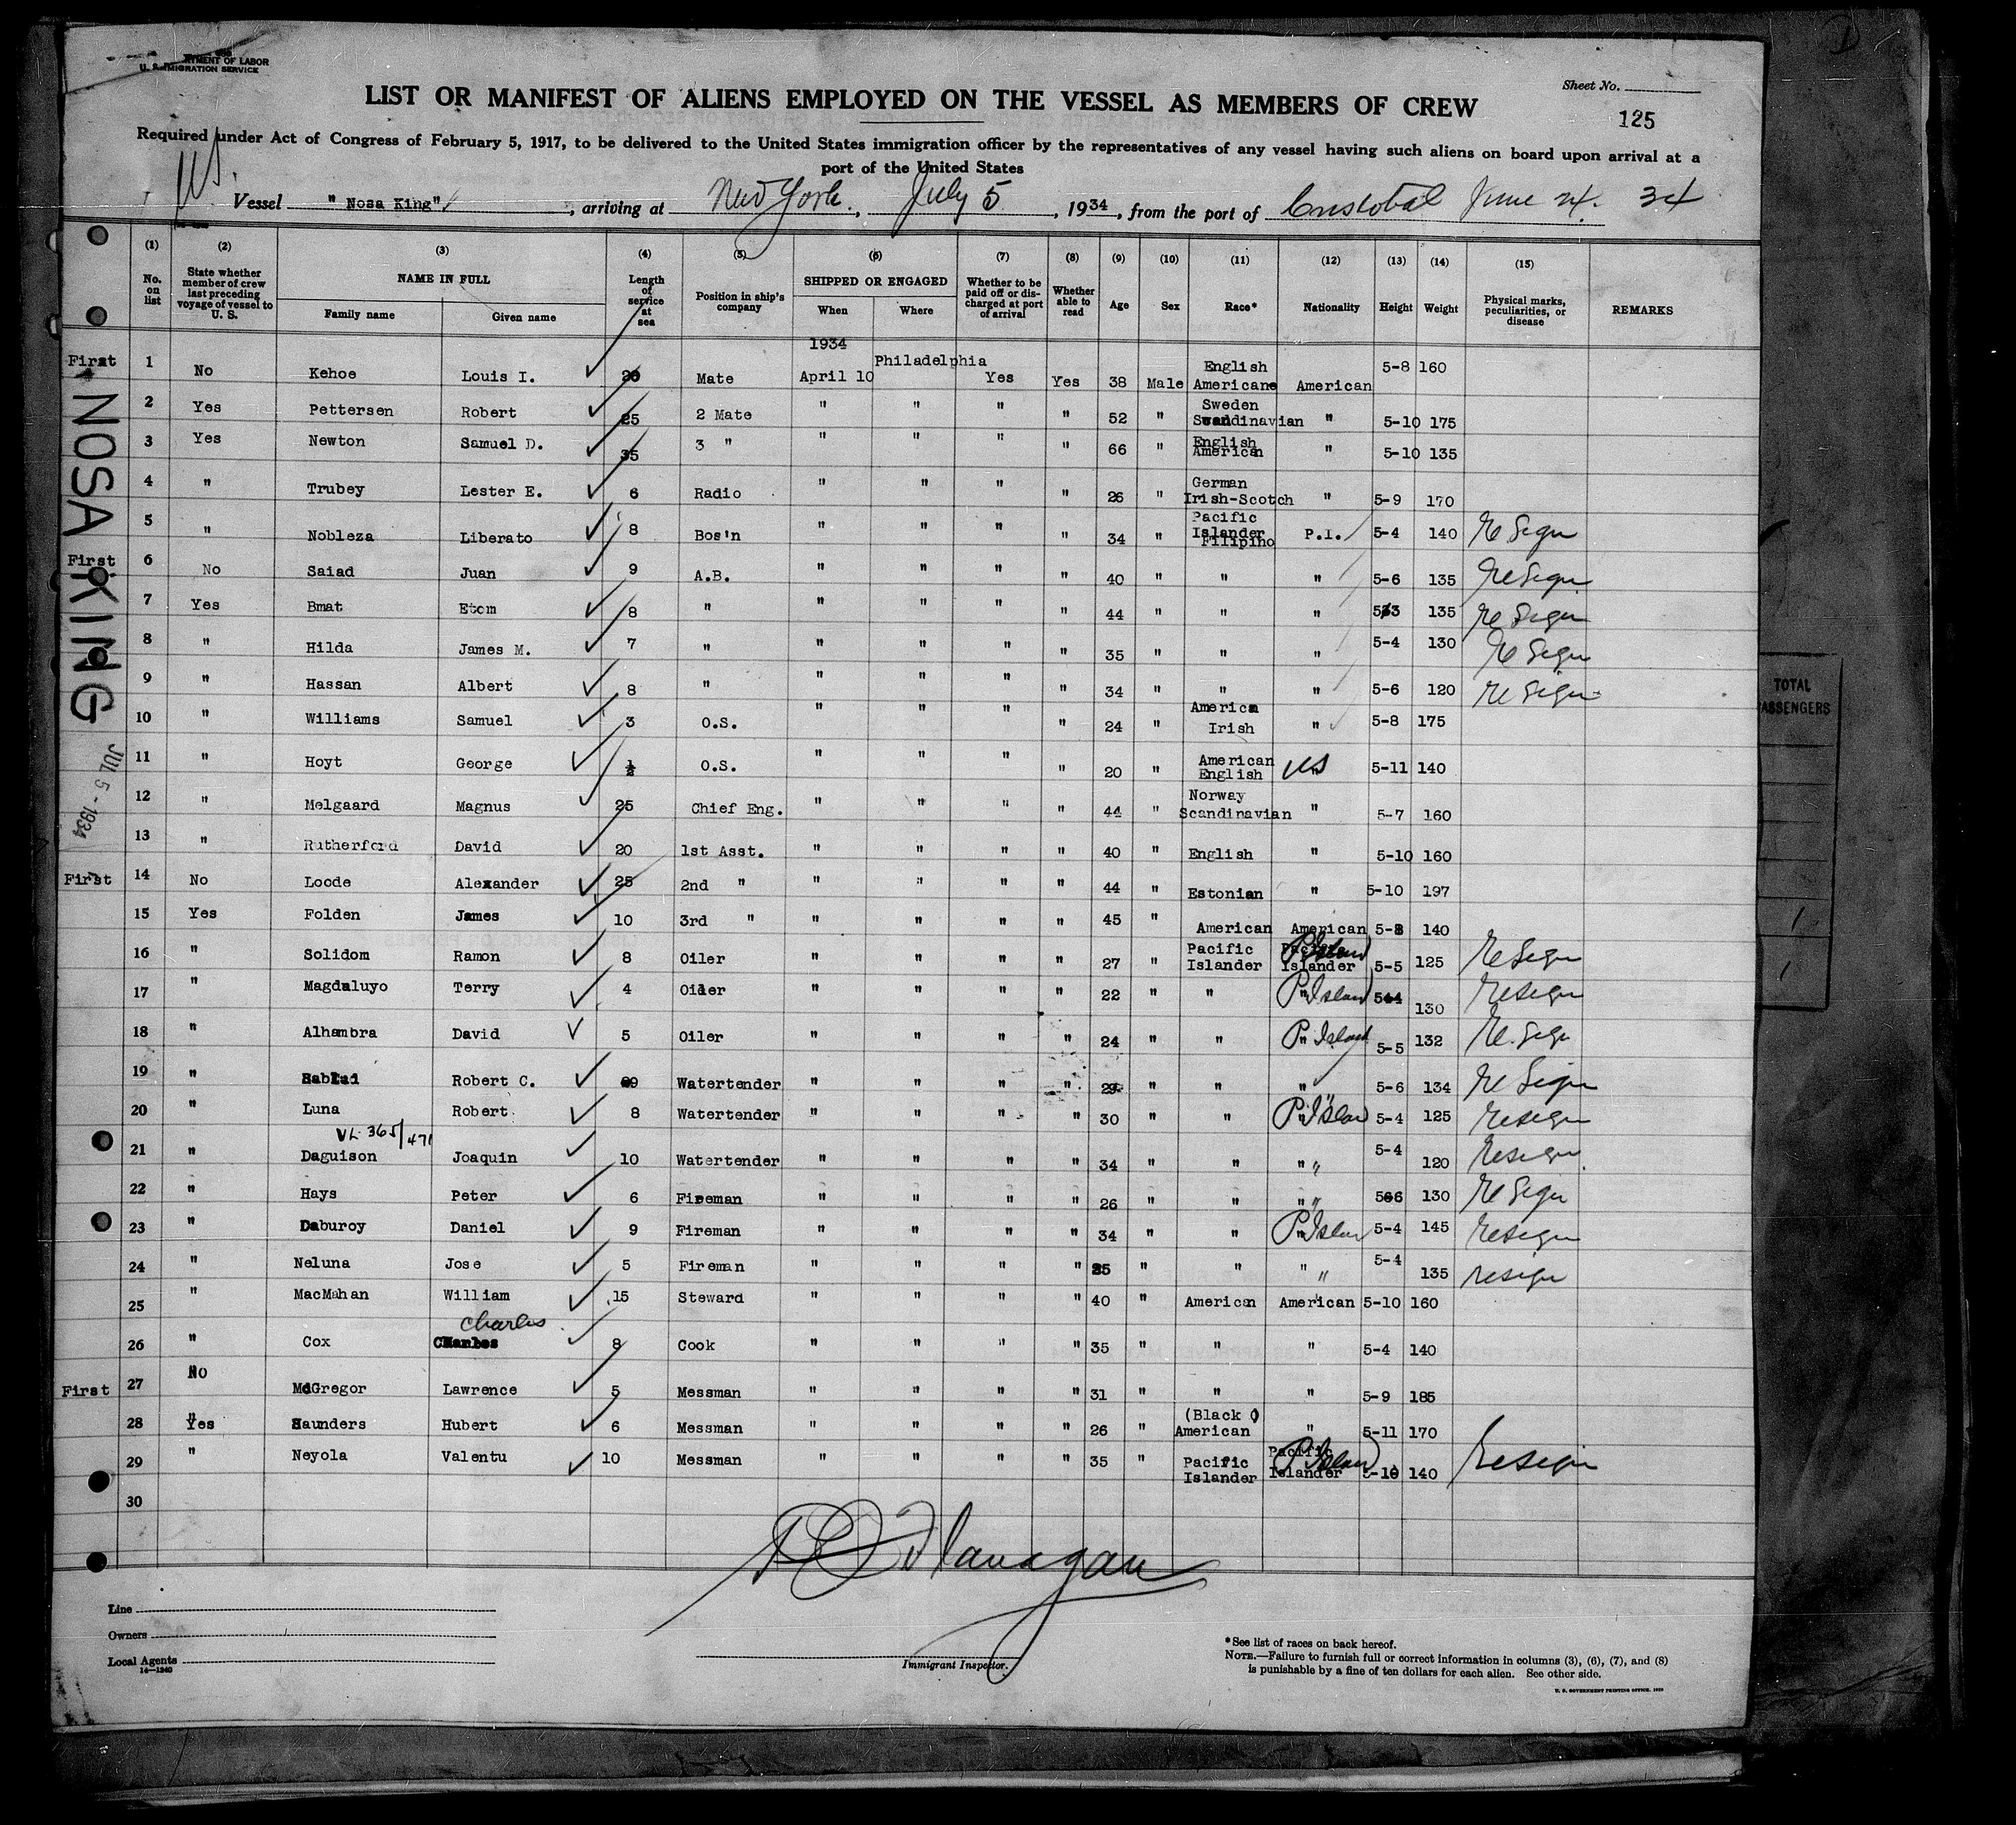 MENT OF LABOR
U. S. IMMIGRATION SERVICE
Sheet No.
125
LIST OR MANIFEST OF ALIENS EMPLOYED ON THE VESSEL AS MEMBERS OF CREW
Required under Act of Congress of February 5, 1917, to be delivered to the United States immigration officer by the representatives of any vessel having such aliens on board upon arrival at a
port of the United States
Vessel "Nosa King", arriving at New York, July 5, 1934, from the port of Cristobal June 24. 34
(1) (2) (3) (4) (5) (6) (7) (8) (9) (10) (11) (12) (13) (14) (15)
No. on list State whether member of crew last preceding voyage of vessel to U. S. NAME IN FULL Family name Given name Length of service at sea Position in ship's company SHIPPED OR ENGAGED When Where Whether to be paid off or discharged at port of arrival Whether able to read Age Sex Race* Nationality Height Weight Physical marks, peculiarities, or disease REMARKS
1934
First 1 No Kehoe Louis I. 20 Mate April 10 Philadelphia Yes Yes 38 Male English American American 5-8 160
2 Yes Pettersen Robert 25 2 Mate " " " " 52 " Sweden Scandinavian " 5-10 175
3 Yes Newton Samuel D. 35 3 " " " " " 66 " English American " 5-10 135
4 " Trubey Lester E. 6 Radio " " " " 26 " German Irish-Scotch " 5-9 170
5 " Nobleza Liberato 8 Bos'n " " " " 34 " Pacific Islander Filipino P.I. 5-4 140 Re Sign
First 6 No Saiad Juan 9 A.B. " " " " 40 " " " 5-6 135 ReSign
7 Yes Bmat Etom 8 " " " " " 44 " " " 5-3 135 Re Sign
8 " Hilda James M. 7 " " " " " 35 " " " 5-4 130 Re Sign
9 " Hassan Albert 8 " " " " " 34 " " " 5-6 120 Re Sign
10 " Williams Samuel 3 O.S. " " " " 24 " America Irish " 5-8 175
11 " Hoyt George ½ O.S. " " " " 20 " American English US 5-11 140
12 " Melgaard Magnus 25 Chief Eng. " " " " 44 " Norway Scandinavian " 5-7 160
13 " Rutherford David 20 1st Asst. " " " " 40 " English " 5-10 160
First 14 No Loode Alexander 25 2nd " " " " " 44 " Estonian " 5-10 197
15 Yes Folden James 10 3rd " " " " " 45 " American American 5-8 140
16 " Solidom Ramon 8 Oiler " " " " 27 " Pacific Islander Pacific Islander P Islan 5-5 125 ReSign
17 " Magdaluyo Terry 4 Oiler " " " " 22 " " P Islan 5-4 130 Resign
18 " Alhambra David 5 Oiler " " " " 24 " " P. Island 5-5 132 Re. Sign
19 " Robert C. 9 Watertender " " " " 29 " " " 5-6 134 Re Sign
20 " Luna Robert 8 Watertender " " " " 30 " " P Islan 5-4 125 Resign
VL 365/471
21 " Daguison Joaquin 10 Watertender " " " " 34 " " " 5-4 120 Resign
22 " Hays Peter 6 Fireman " " " " 26 " " " 5-6 130 Re Sign
23 " Daburoy Daniel 9 Fireman " " " " 34 " " P Islan 5-4 145 Resign
24 " Neluna Jose 5 Fireman " " " " 35 " " " 5-4 135 resign
25 " MacMahan William 15 Steward " " " " 40 " American American 5-10 160
Charles
26 " Cox Charles 8 Cook " " " " 35 " " " 5-4 140
First 27 No McGregor Lawrence 5 Messman " " " " 31 " " " 5-9 185
28 Yes Saunders Hubert 6 Messman " " " " 26 " (Black) American " 5-11 170
29 " Neyola Valentu 10 Messman " " " " 35 " Pacific Islander Pacific Islander P Islan 5-10 140 Resign
30
NOSA KING
JUL 5 - 1934
TOTAL
PASSENGERS
1
1
Flanagan
Immigrant Inspector.
Line
Owners
Local Agents
14—1240
*See list of races on back hereof.
NOTE.—Failure to furnish full or correct information in columns (3), (6), (7), and (8)
is punishable by a fine of ten dollars for each alien. See other side.
U. S. GOVERNMENT PRINTING OFFICE.